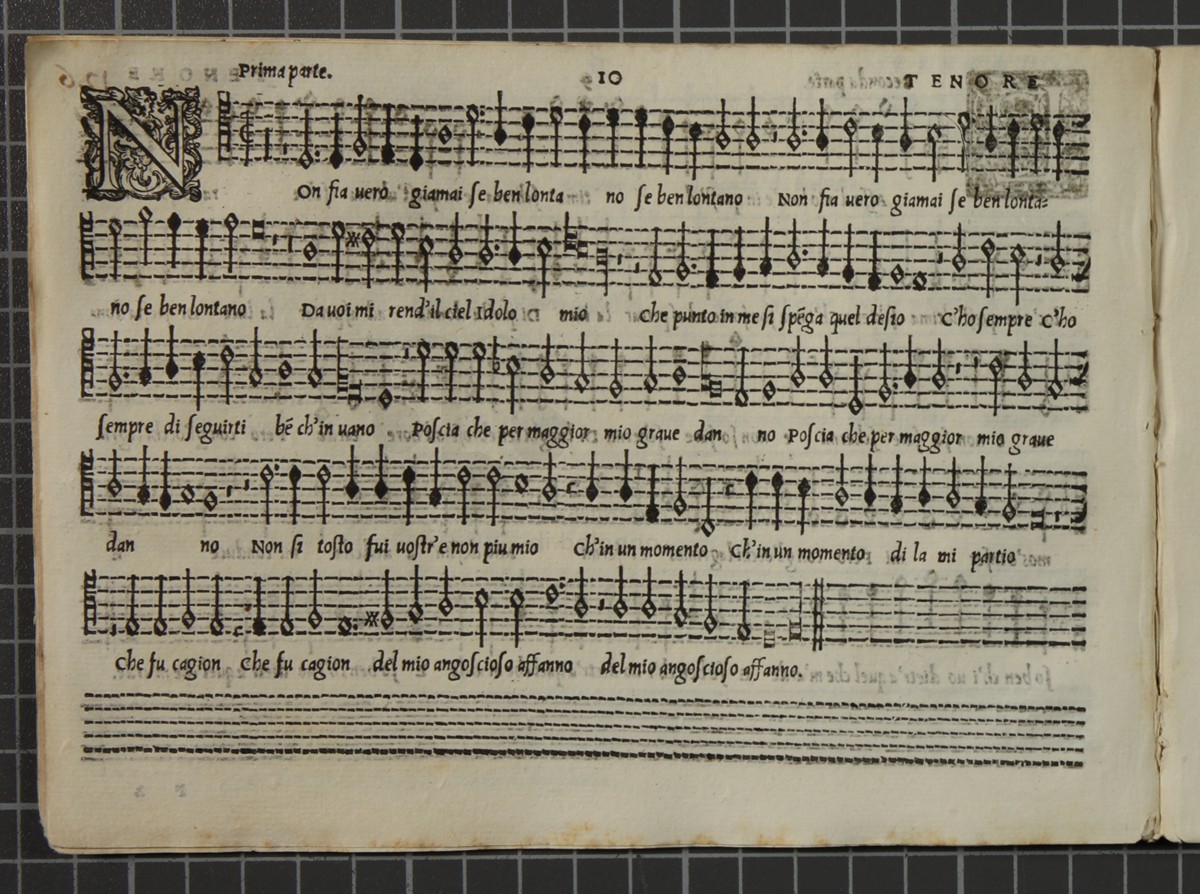 Prima parte. 10 TENORE
NOn fia uero giamai se ben lonta no se ben lontano Non fia uero giamai se ben lonta=
no se ben lontano Da uoi mi rend'il ciel Idolo mio Che punto in me si spẽga quel desio C'ho sempre C'ho
sempre di seguirti bẽ ch'in uano Poscia che per maggior mio graue dan no Poscia che per maggior mio graue
dan no Non si tosto fui uostr'e non piu mio Ch'in un momento Ch'in un momento di la mi partio
Che fu cagion Che fu cagion del mio angoscioso affanno del mio angoscioso affanno.